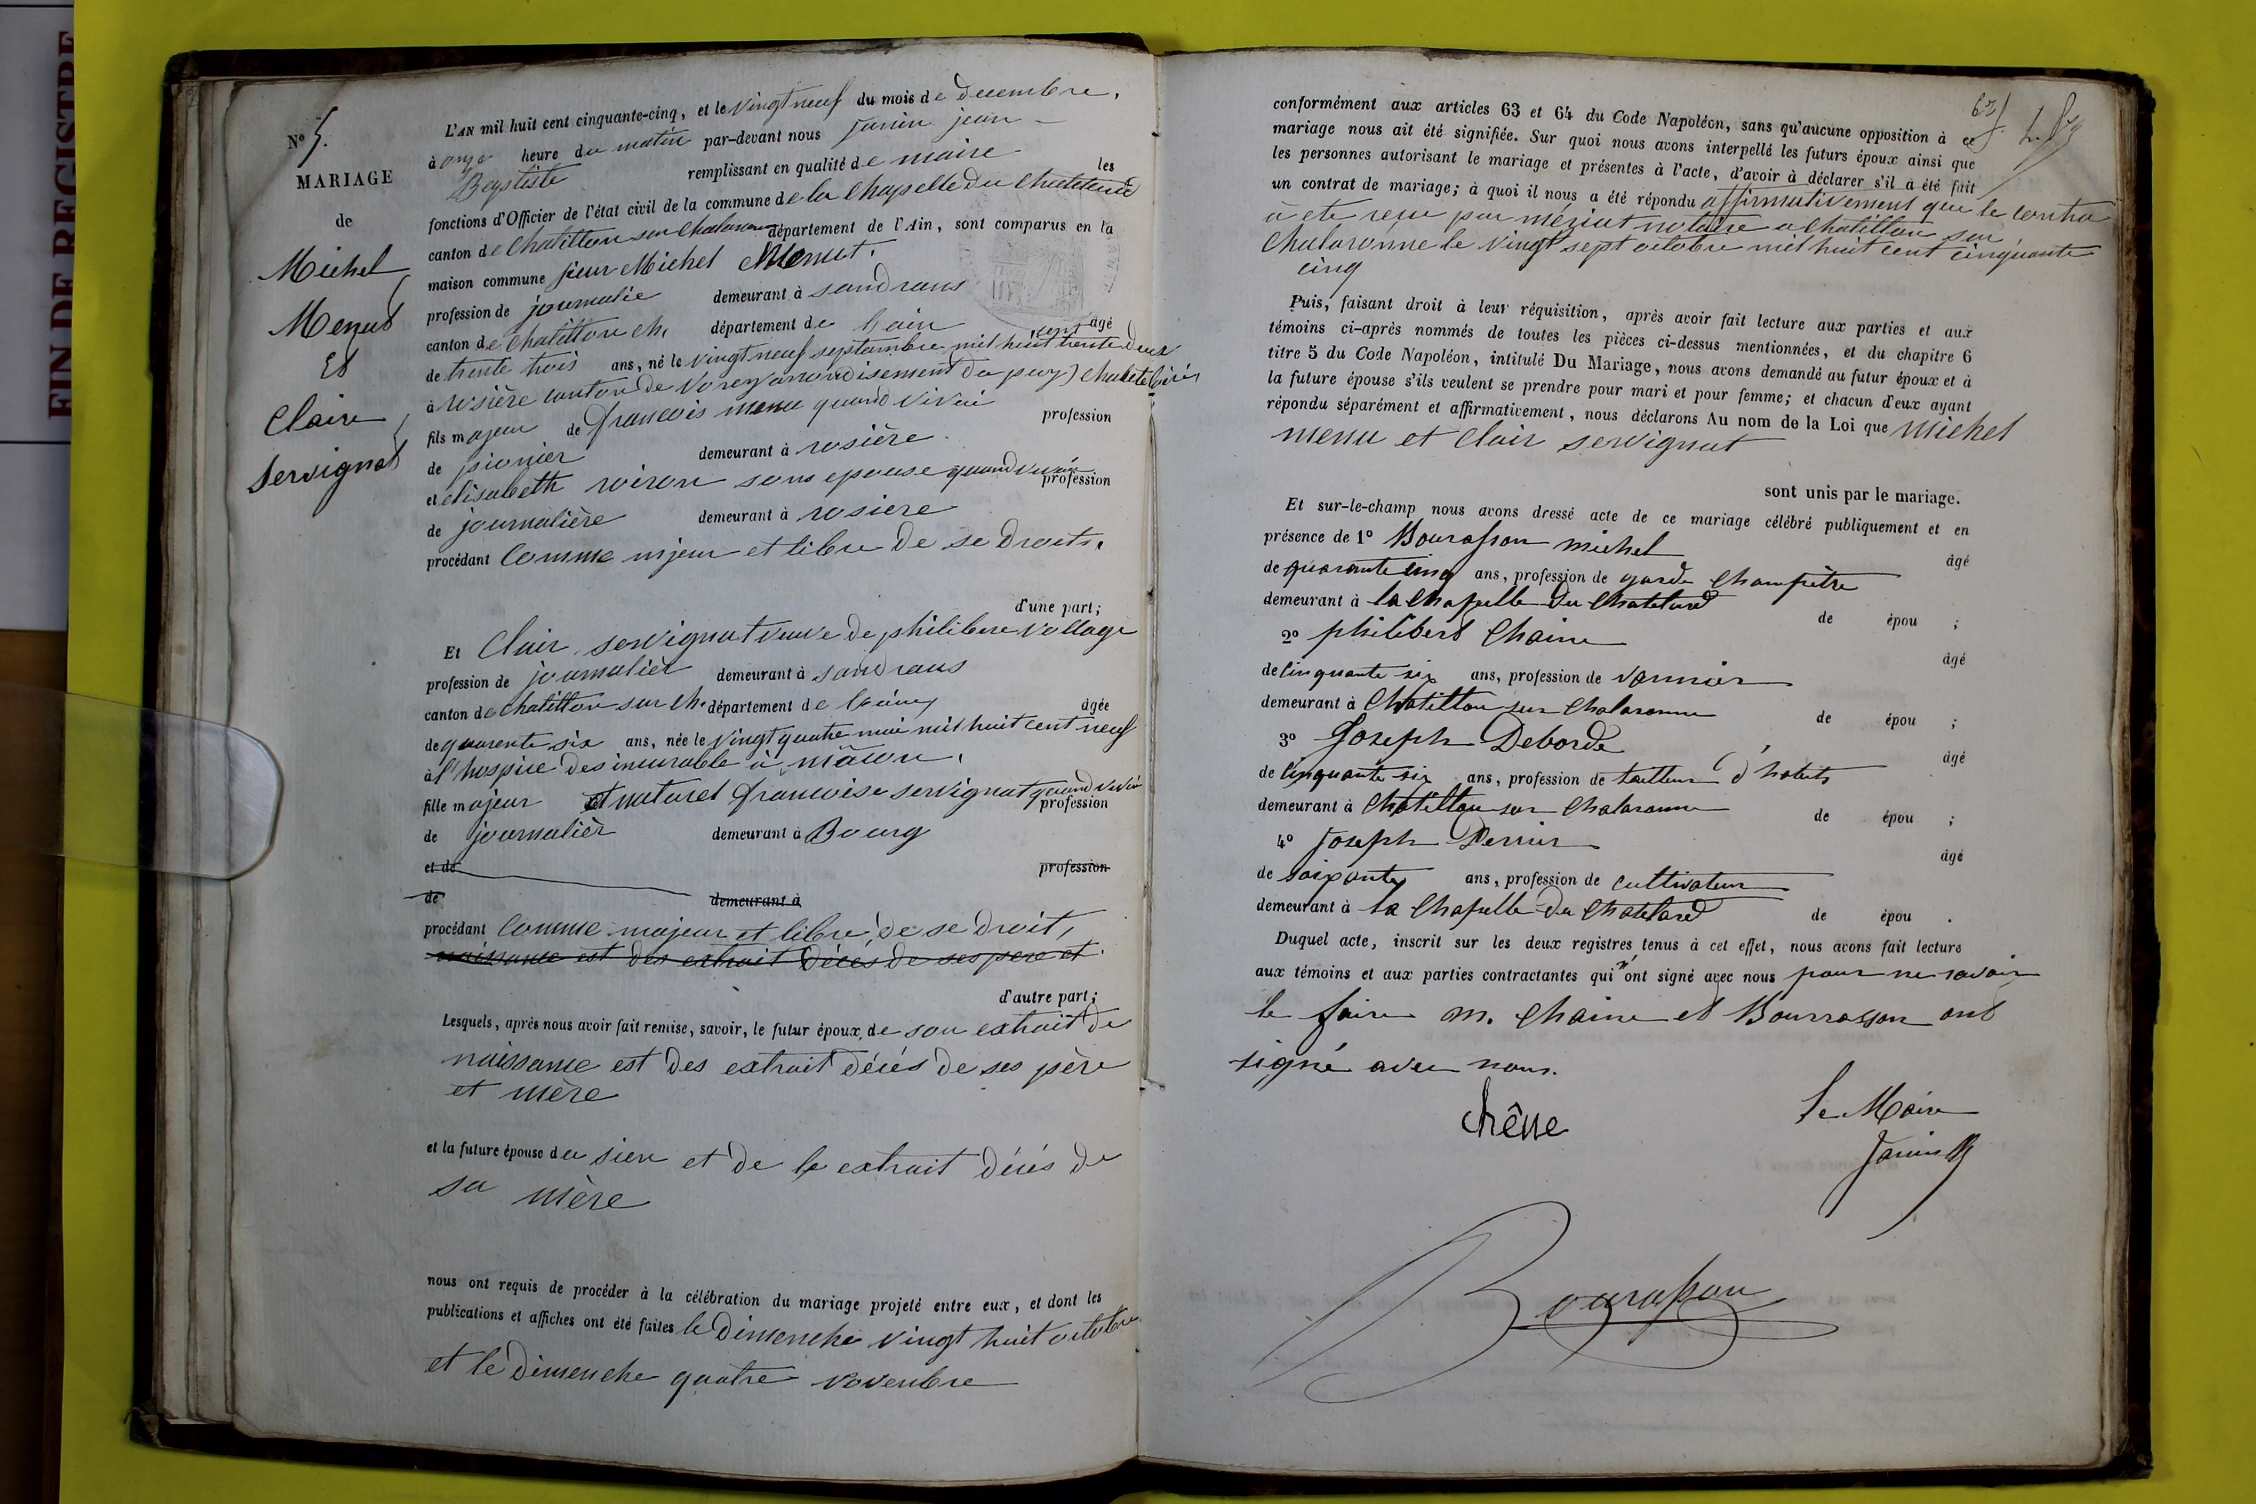 FIN DE REGISTRE
N° 5.
MARIAGE
de
Michel
Menut
Et
Claire
Servignat
L'AN mil huit cent cinquante-cinq, et le vingt neuf du mois de decembre,
à onze heure du matin par-devant nous Janin jean
Baptiste remplissant en qualité de maire les
fonctions d'Officier de l'état civil de la commune de la Chapelle du Chatelard
canton de Chatillon sur Chalaronne département de l'Ain, sont comparus en la
maison commune sieur Michel Menut.
profession de journalie demeurant à sandrans
canton de Chatillon ch. département de l'ain âgé
de trente trois ans, né le vingt neuf septambre mil huit cent trente deux
à rosière canton de Vorey arrondisement du puy)
fils majeur de francois menu quand vivai profession
de pionier demeurant à rosière.
et elisabeth roiron sons epouse quand vivai profession
de journalière demeurant à rosiere
procédant comme mjeur et libre de se droits.
d'une part;
Et Clair servignat veuve de philibere vollage
profession de journalièr demeurant à sandrans
canton de chatillon sur ch. département de l'ain âgée
de quarente six ans, née le vingt quatre mai mil huit cent neuf
à l'hospice des incurable à mâcon.
fille majeur et naturel francoise servignat quand vivai profession
de journalièr demeurant à Bourg
et de profession
de demeurant à
procédant comme majeur et libre de se droit,
naissance est des extrait décés de ses pere et
d'autre part;
Lesquels, après nous avoir fait remise, savoir, le futur époux, de son extrait de
naissance est des extrait décés de ses père
et mère
et la future épouse du sien et de le extrait décés de
sa mère
nous ont requis de procéder à la célébration du mariage projeté entre eux, et dont les
publications et affiches ont été faites le Dimenche vingt huit octobre
et le Dimenche quatre novenbre
conformément aux articles 63 et 64 du Code Napoléon, sans qu'aucune opposition à ce
mariage nous ait été signifiée. Sur quoi nous avons interpellé les futurs époux ainsi que
les personnes autorisant le mariage et présentes à l'acte, d'avoir à déclarer s'il a été fait
un contrat de mariage; à quoi il nous a été répondu affirmativement que le contra
à ete reçu par mériat notaire a Chatillon sur
Chalaronne le vingt sept octobre mil huit cent cinquante
cinq
Puis, faisant droit à leur réquisition, après avoir fait lecture aux parties et aux
témoins ci-après nommés de toutes les pièces ci-dessus mentionnées, et du chapitre 6
titre 5 du Code Napoléon, intitulé Du Mariage, nous avons demandé au futur époux et à
la future épouse s'ils veulent se prendre pour mari et pour femme; et chacun d'eux ayant
répondu séparément et affirmativement, nous déclarons Au nom de la Loi que Michel
menu et Clair servignat
sont unis par le mariage.
Et sur-le-champ nous avons dressé acte de ce mariage célébré publiquement et en
présence de 1° Bourasson michel âgé
de quarante cinq ans, profession de garde champêtre
demeurant à la chapelle du Chatelard de épou ;
2° philibert Chaine âgé
de cinquante six ans, profession de vannier
demeurant à Chatillon sur Chalaronne de épou ;
3° Joseph Deborde âgé
de cinquante six ans, profession de tailleur d'habits
demeurant à Chatillon sur Chalaronne de épou ;
4° Joseph Perrier âgé
de soixante ans, profession de cultivateur
demeurant à la Chapelle du Chatelard de épou .
Duquel acte, inscrit sur les deux registres tenus à cet effet, nous avons fait lecture
aux témoins et aux parties contractantes qui n'ont signé avec nous pour ne savoir
le faire m. Chaine et Bourrasson ont
signé avec nous.
chêne
le Maire
Janin
Bourasson